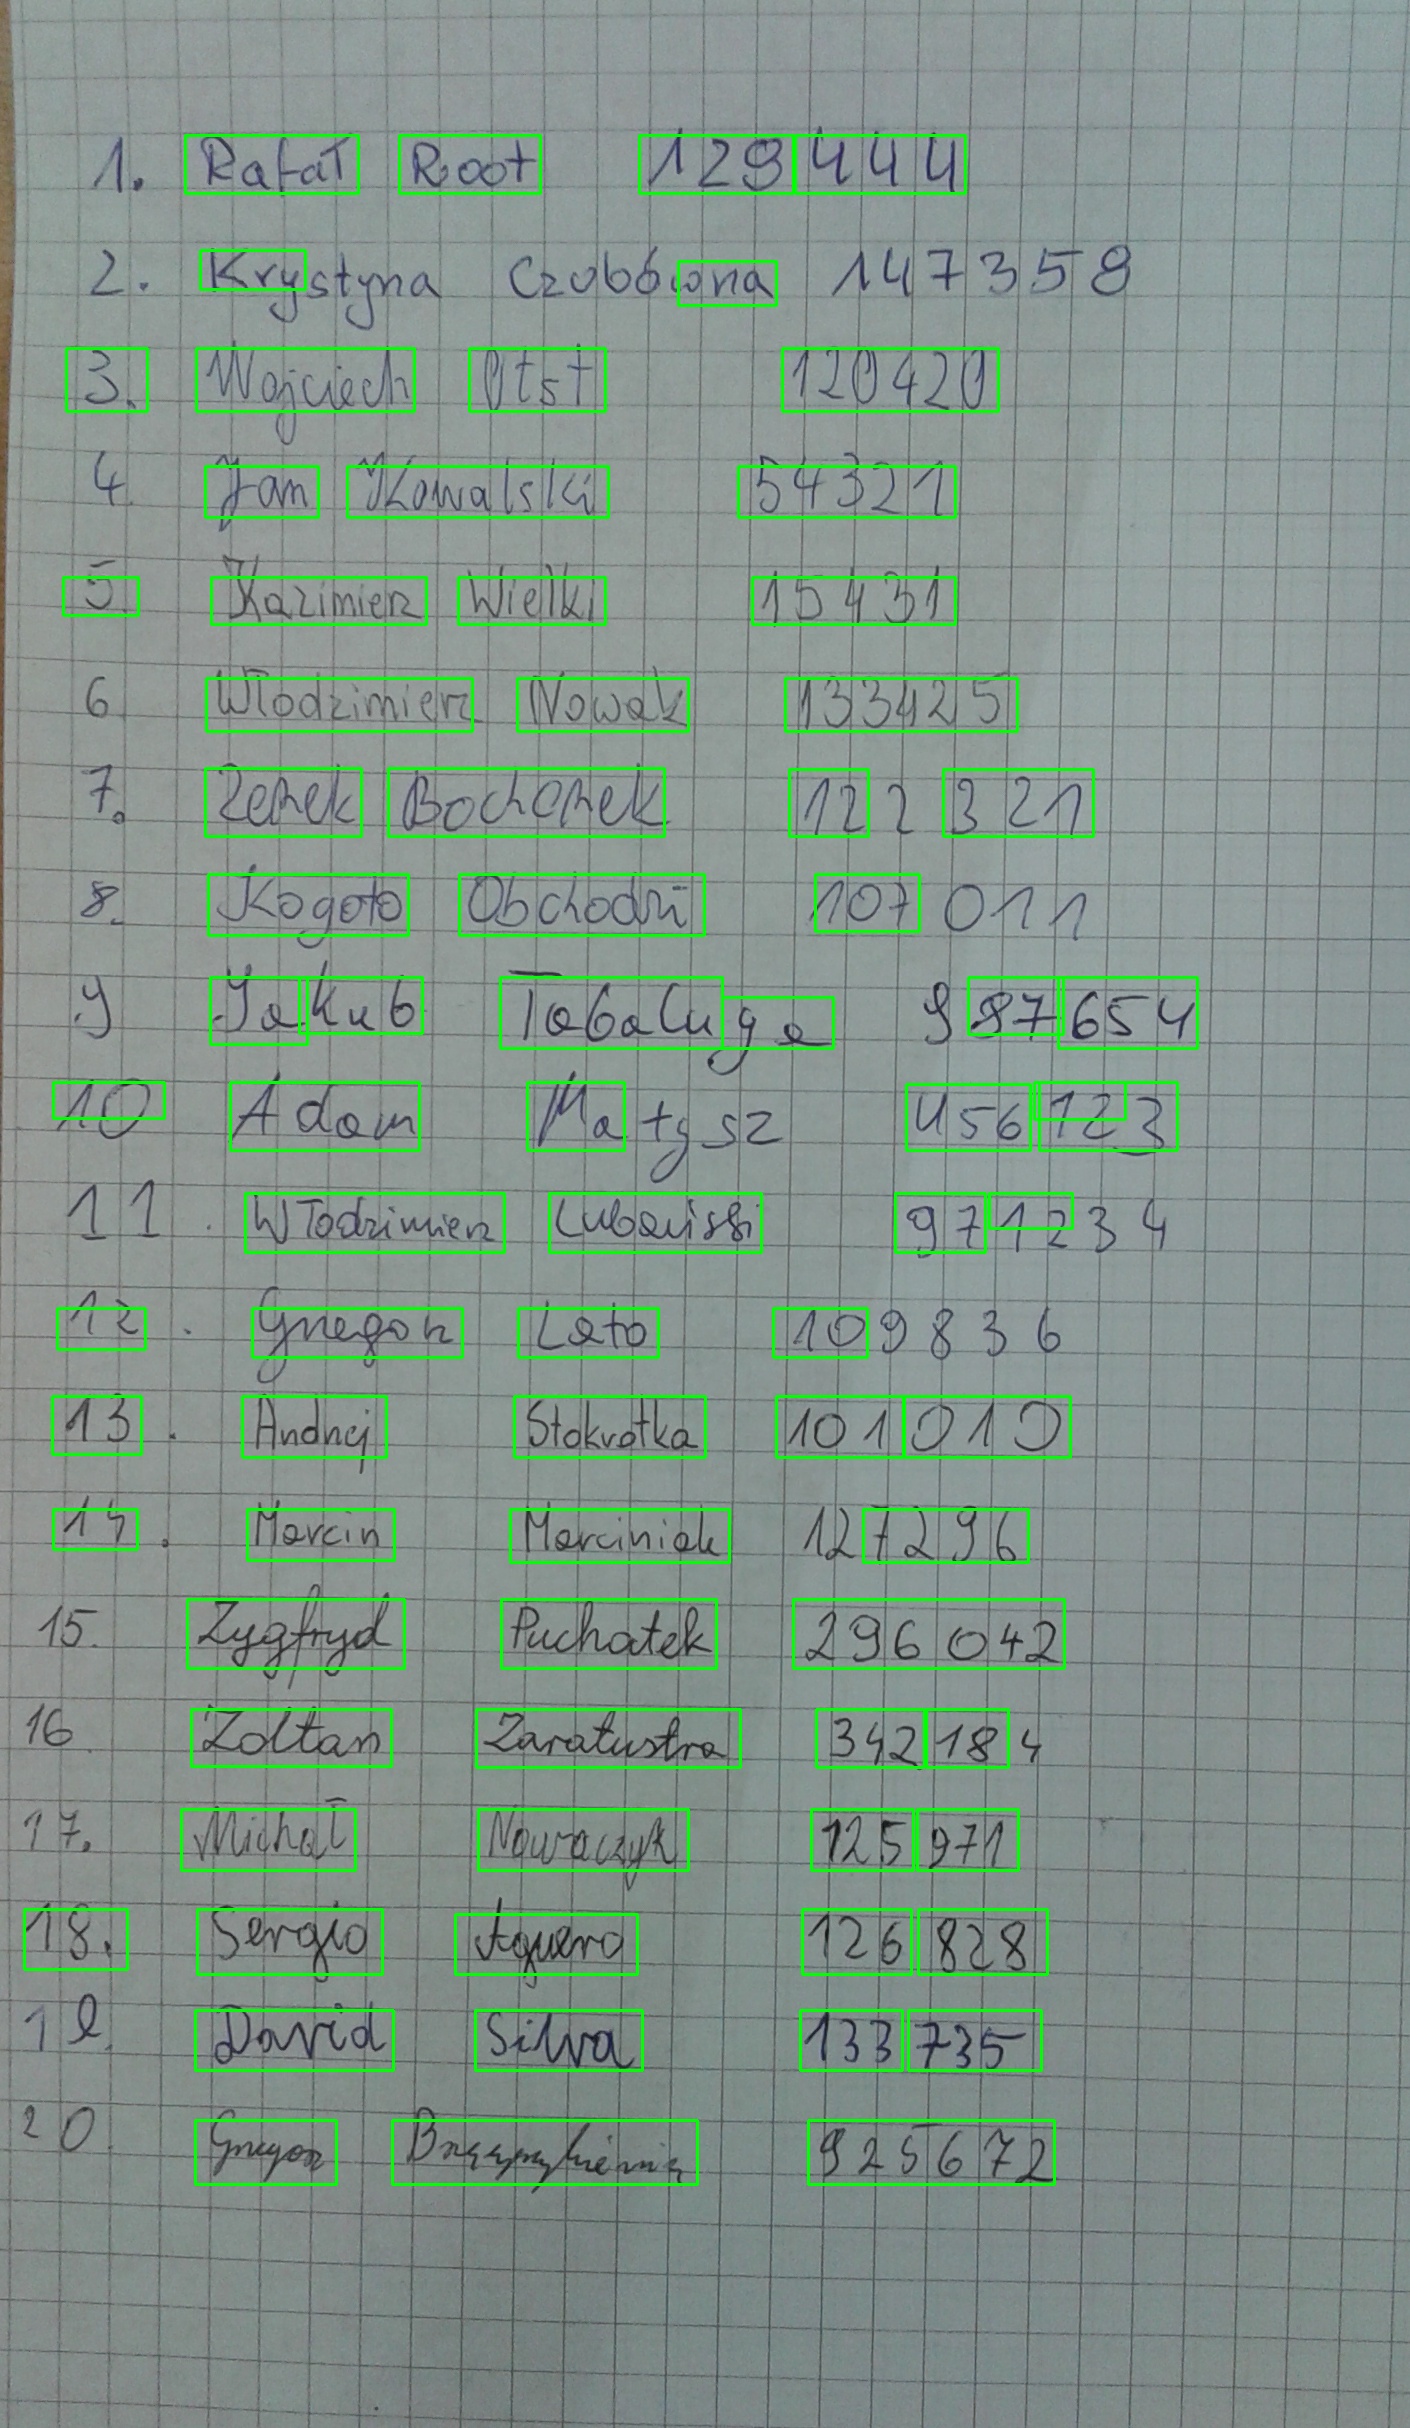 1. Rafał Root 129444
2. Krystyna 147359
3. Wojciech Otst 120420
4 Jan Kowalski 54321
5. Kazimierz Wielki 15431
6 Włodzimierz Nowak 133425
7. Zenek Bochenek 122 321
8. Kogoto Obchodzi 107 011
9 Jakub Tabaluga 987654
10 Adam Małysz 456123
11. Włodzimierz 971234
12. Grzegorz Lato 109836
13. Andrzej Stokrotka 101010
14. Marcin Marciniak 127296
15. Zygfryd Puchatek 296042
16 Zoltan Zaratustra 342184
17. Michał Nowaczyk 125971
18. Sergio Aguero 126 828
19. David Silva 133 735
20. Grzegorz 925672